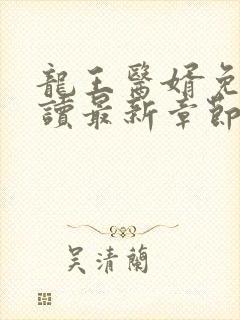 龍王醫婿免
讀最新章節
吳清蘭